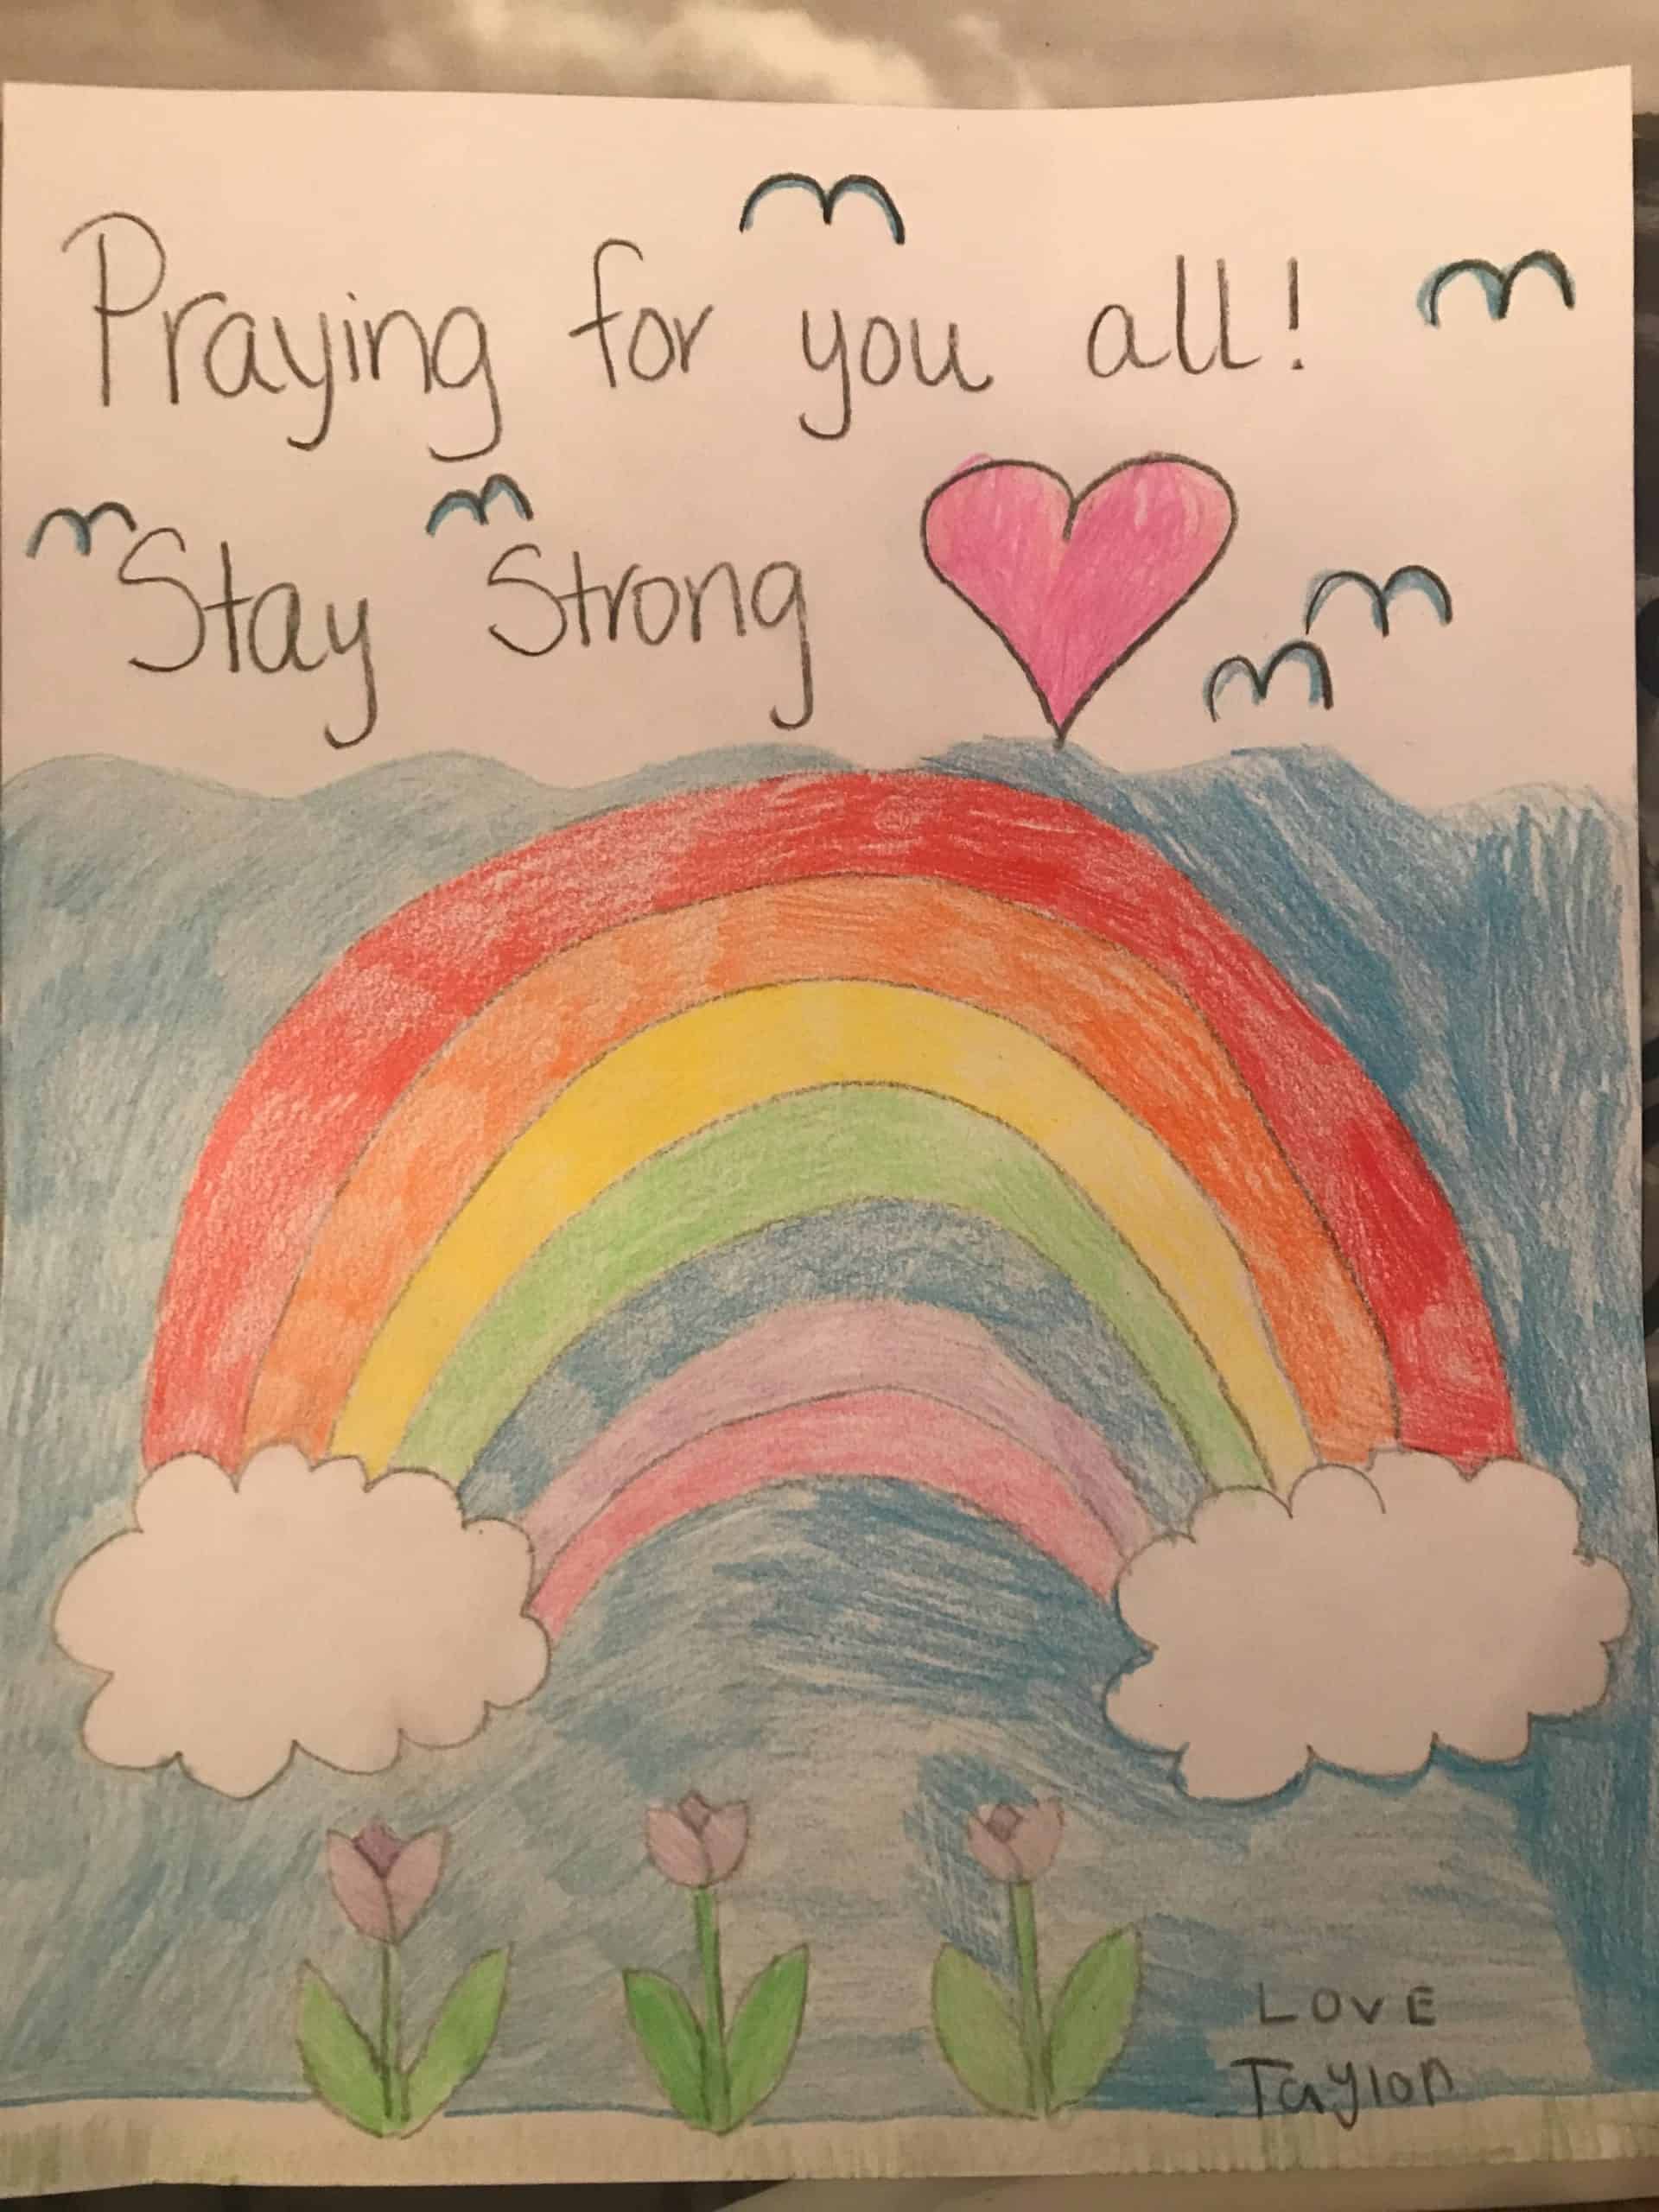 Praying for you all!
Stay Strong
LOVE
Taylor